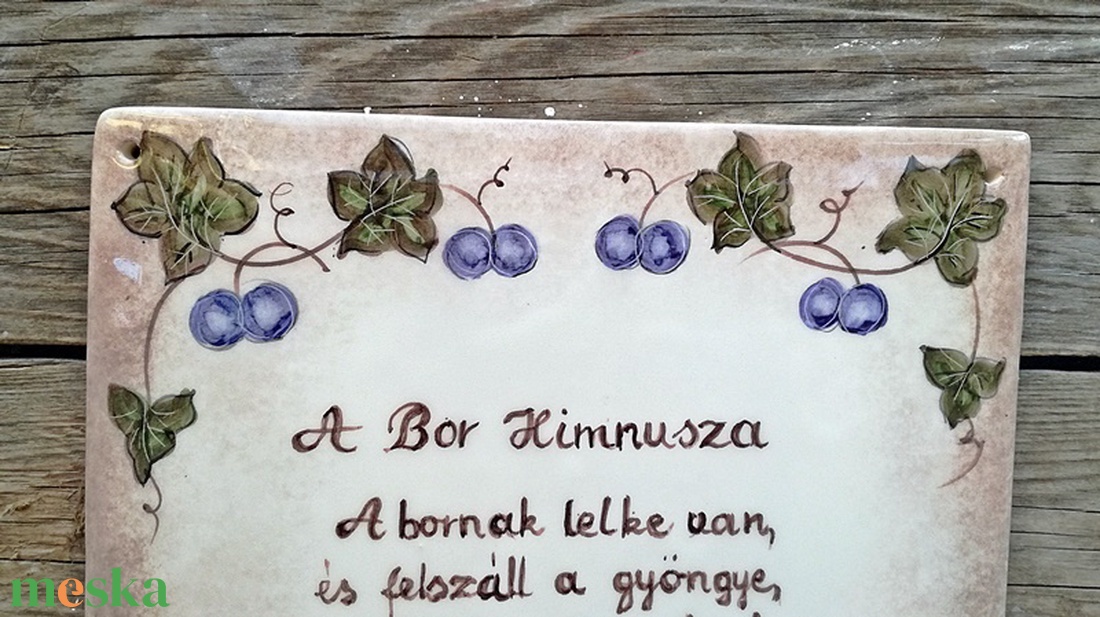 A Bor Himnusza
A bornak lelke van,
és felszáll a gyöngye,
meska